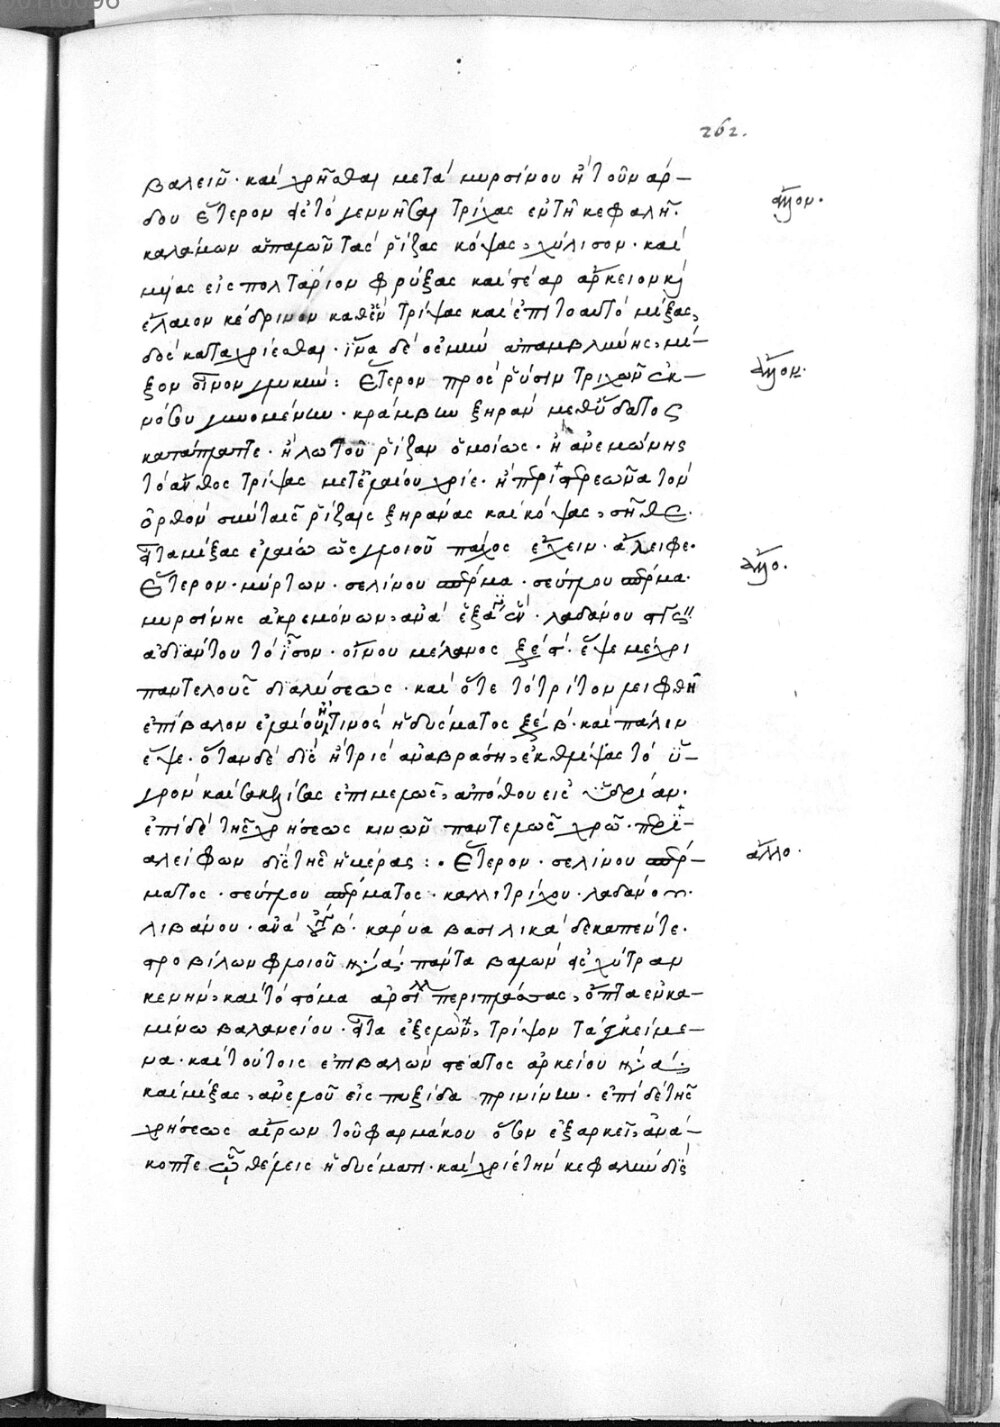 262.
βαλεῖν· καὶ χρῆσθαι μετὰ μυρσίνου ἢ τοῦ ναρ-
δου ἕτερον ὥστε τὸ γεννῆσαι τρίχας ἐν τῇ κεφαλῇ.
ἄλλον.
καλάμων ἁπαλῶν τὰς ῥίζας κόψας, χύλισον· καὶ
μύας εἰς ποτάριον φρύξας καὶ στέαρ ἄρκειον καὶ
ἔλαιον κέδρινον καθ' ἓν τρίψας καὶ ἐπὶ τὸ αὐτὸ μίξας,
δὸς καταχρίεσθαι· ἵνα δὲ ὀσμὴν
ξον οἶνον γλυκύν: ἕτερον πρὸς ῥύσιν τριχῶν ἐκ
ἄλλον.
νόσου γινομένην· κράμβην ξηρὰν μεθ' ὕδατος
κατάπλαττε· ἢ λωτοῦ ῥίζαν ὁμοίως· ἢ ἀνεμώνης
τὸ ἄνθος τρίψας μετ' ἐλαίου χρῖε· ἢ
ὀρθὸν σὺν ταῖς ῥίζαις ξηράνας καὶ κόψας, σῆθε·
εἶτα μίξας ἐλαίῳ ὡς γλοιοῦ πάχος ἔχειν· ἄλειφε·
ἕτερον· μύρτων· σελίνου σπέρμα· σεύτλου σπέρμα·
ἄλλο.
μυρσίνης ἀκρεμόνων, ἀνὰ · λαδάνου
ἀδιάντου τὸ ἴσον· οἴνου μέλανος ξέ· ἕψε μέχρι
παντελοῦς διαλύσεως· καὶ ὅτε τὸ τρίτον λειφθῇ
ἐπίβαλον ἐλαίου ἤ τινος ἡδύσματος ξέ β· καὶ πάλιν
ἕψε· ὅταν δὲ δὶς ἢ τρὶς ἀναβράσῃ, ἐκθλίψας τὸ ὑ-
γρὸν καὶ σακκίσας ἐπιμελῶς, ἀπόθου εἰς ὑδρίαν·
ἐπὶ δὲ τῆς χρήσεως κινῶν παντελῶς χρῶ·
αλείφων δὶς τῆς ἡμέρας:· ἕτερον· σελίνου σπέρ-
ἄλλο·
ματος· σεύτλου σπέρματος· καλλιτρίχου· λαδάνου·
λιβάνου· ἀνὰ β· κάρυα βασιλικὰ δεκαπέντε·
στροβίλων φλοιοῦ · πάντα βαλὼν εἰς χύτραν
κενήν, καὶ τὸ στόμα περιπλάσας, ὄπτα ἐν κα-
μίνῳ βαλανείου· εἶτα ἐξελών, τρίψον τὰ ἐγκείμε-
να· καὶ τούτοις ἐπιβαλὼν στέατος ἀρκείου
καὶ μίξας, ἀνελοῦ εἰς πυξίδα πρινίνην· ἐπὶ δὲ τῆς
χρήσεως αἴρων τοῦ φαρμάκου ὅσον ἐξαρκεῖ, ἀνά-
κοπτε ᾧ θέλεις ἡδύσματι· καὶ χρῖε τὴν κεφαλὴν δὶς